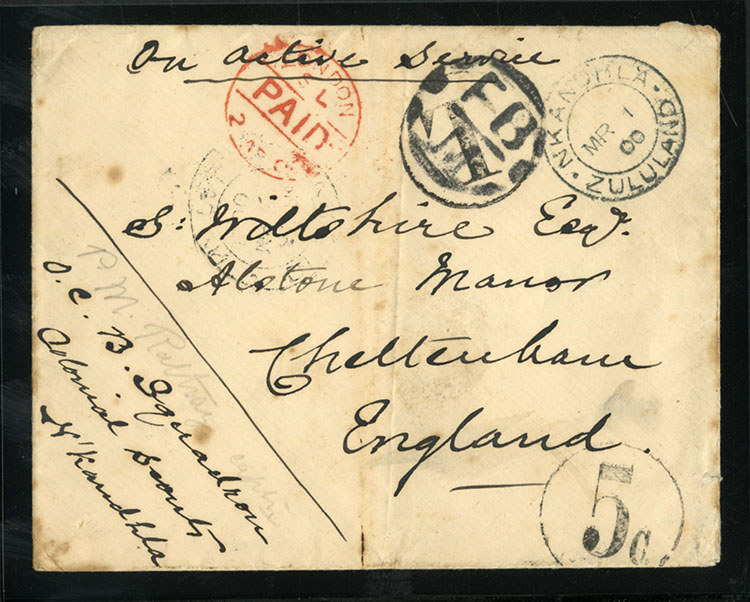 On Active Service
LONDON
PAID
1
F.B.
NKANDHLA · ZULULAND
MR 1
00
S: Wiltshire Esqr.
Alstone Manor
Cheltenham
England.
P. M. Rattray
Captn
O.C. B. Squadron
Colonial Scouts
N'kandhla
5c.